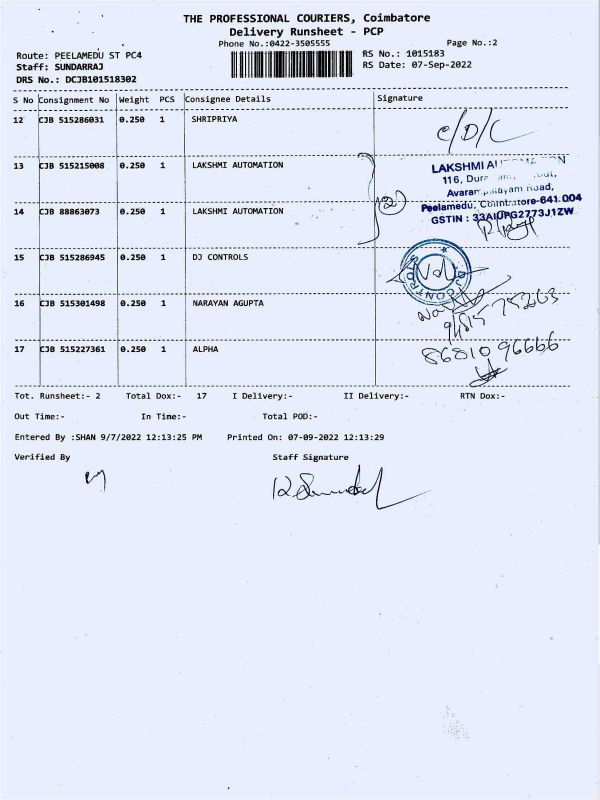 THE PROFESSIONAL COURIERS, Coimbatore
Delivery Runsheet - PCP
Phone No.:0422-3505555
Page No.:2
Route: PEELAMEDU ST PC4
RS No.: 1015183
Staff: SUNDARRAJ
RS Date: 07-Sep-2022
DRS No.: DCJB101518302
S No Consignment No Weight PCS Consignee Details Signature
12 CJB 515286031 0.250 1 SHRIPRIYA
C/D/L
13 CJB 515215008 0.250 1 LAKSHMI AUTOMATION
LAKSHMI
116,
Avarampalayam Road,
(2)
Peelamedu, Coimbatore-641 004
14 CJB 88863073 0.250 1 LAKSHMI AUTOMATION
GSTIN : 33AIUPG2773J1ZW
15 CJB 515286945 0.250 1 DJ CONTROLS
DJ CONTROLS
16 CJB 515301498 0.250 1 NARAYAN AGUPTA
17 CJB 515227361 0.250 1 ALPHA
86810 96666
Tot. Runsheet:- 2 Total Dox:- 17 I Delivery:- II Delivery:- RTN Dox:-
Out Time:- In Time:- Total POD:-
Entered By :SHAN 9/7/2022 12:13:25 PM Printed On: 07-09-2022 12:13:29
Verified By Staff Signature